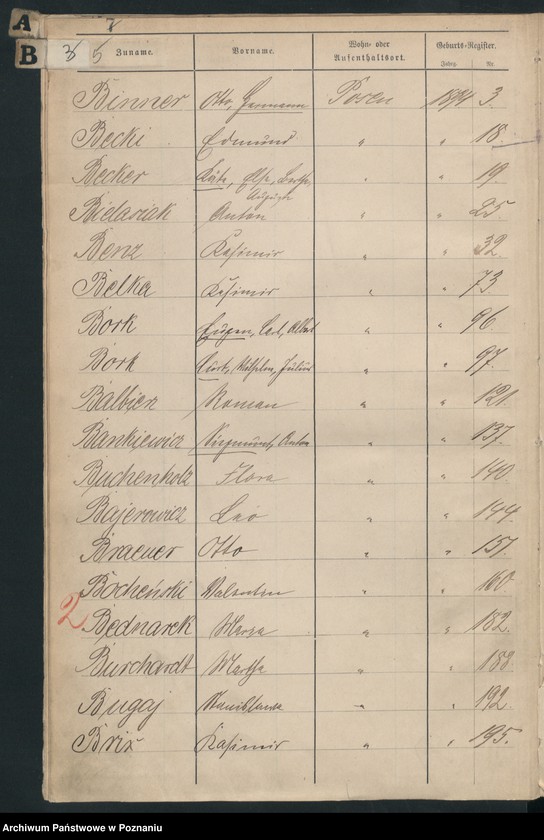 A 7
B 5
Zuname. Vorname. Wohn- oder Aufenthaltsort. Geburts-Register.
Jahrg. Nr.
Binner Otto, Hermann Posen 1894 3.
Becki Edmund " " 18.
Becker Käte, Else, Bertha, Auguste " " 19.
Bielawiak Anton " " 25.
Benz Kasimir " 32.
Belka Kasimir " " 73
Bork Eugen, Carl, Albert " " 96.
Bork Curt, Wilhelm, Julius " " 97.
Balbierz Roman " " 121.
Bankiewicz Siegmund, Anton " " 137.
Buchenholz Flora " " 140.
Bajerowicz Leo " " 144.
Braeuer Otto " " 157.
Bocheński Valentin " " 160.
2 Bednarek Maria " " 182.
Burchardt Martha " " 188
Bugaj Stanislawa " " 192.
Brix Kasimir " " 195.
Archiwum Państwowe w Poznaniu szukajwarchiwach.pl